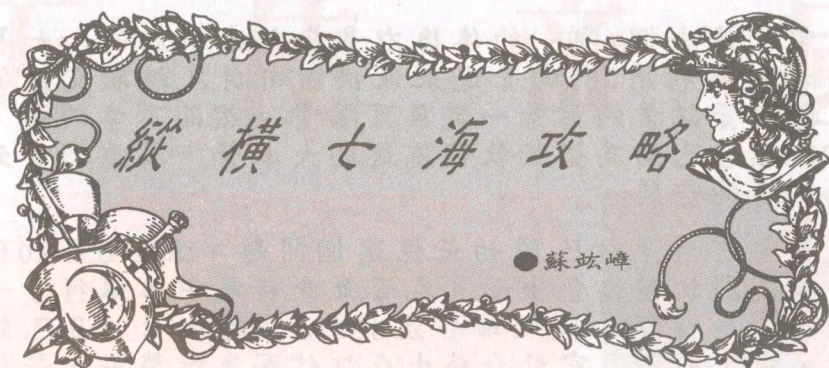 縱橫七海攻略
●蘇竑嶂